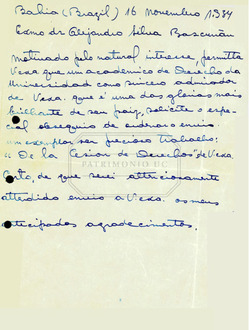 Bahia (Brazil) 16 Novembro 1934
Exmo dr Alejandro Silva Bascuñán
motivado pelo natural interesse, permitta
Vexa. que um academico de Direito da
Universidade como sincero admirador
de Vexa. que é uma das glorias mais
brilhante de seu paiz, solicite o espe-
cial obsequio de o envio
um exemplar seu precioso trabalho:
"De la Cesion de Derechos" de Vexa.
Certo, de que serei attenciosamente
attendido envio a Vexa. os meus
antecipados agradecimentos.
PATRIMONIO UC